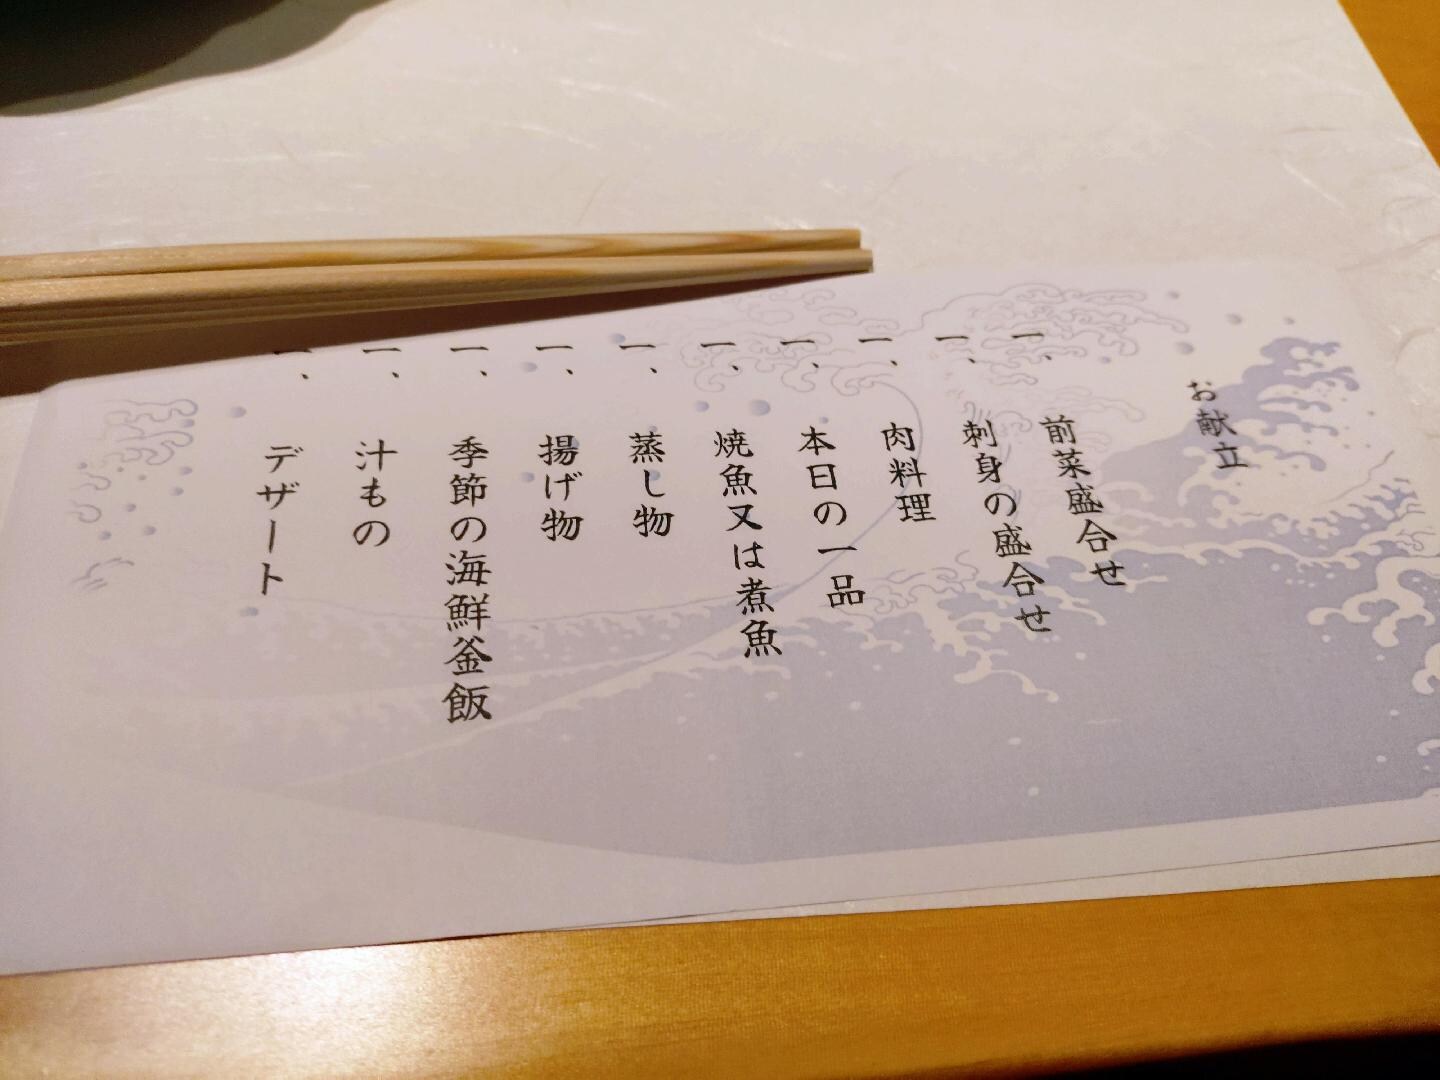 お献立
一、前菜盛合せ
一、刺身の盛合せ
一、肉料理
一、本日の一品
一、焼魚又は煮魚
一、蒸し物
一、揚げ物
一、季節の海鮮釜飯
一、汁もの
一、デザート